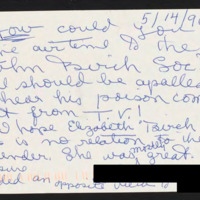 How could you 5/14/9
he airtime to the
ohn Birch Soc
I should be apalled
hear his poison com
t from T.V!
I hope Elizabeth Birch
is no relation
ender. She was great.
ded an opposite view to